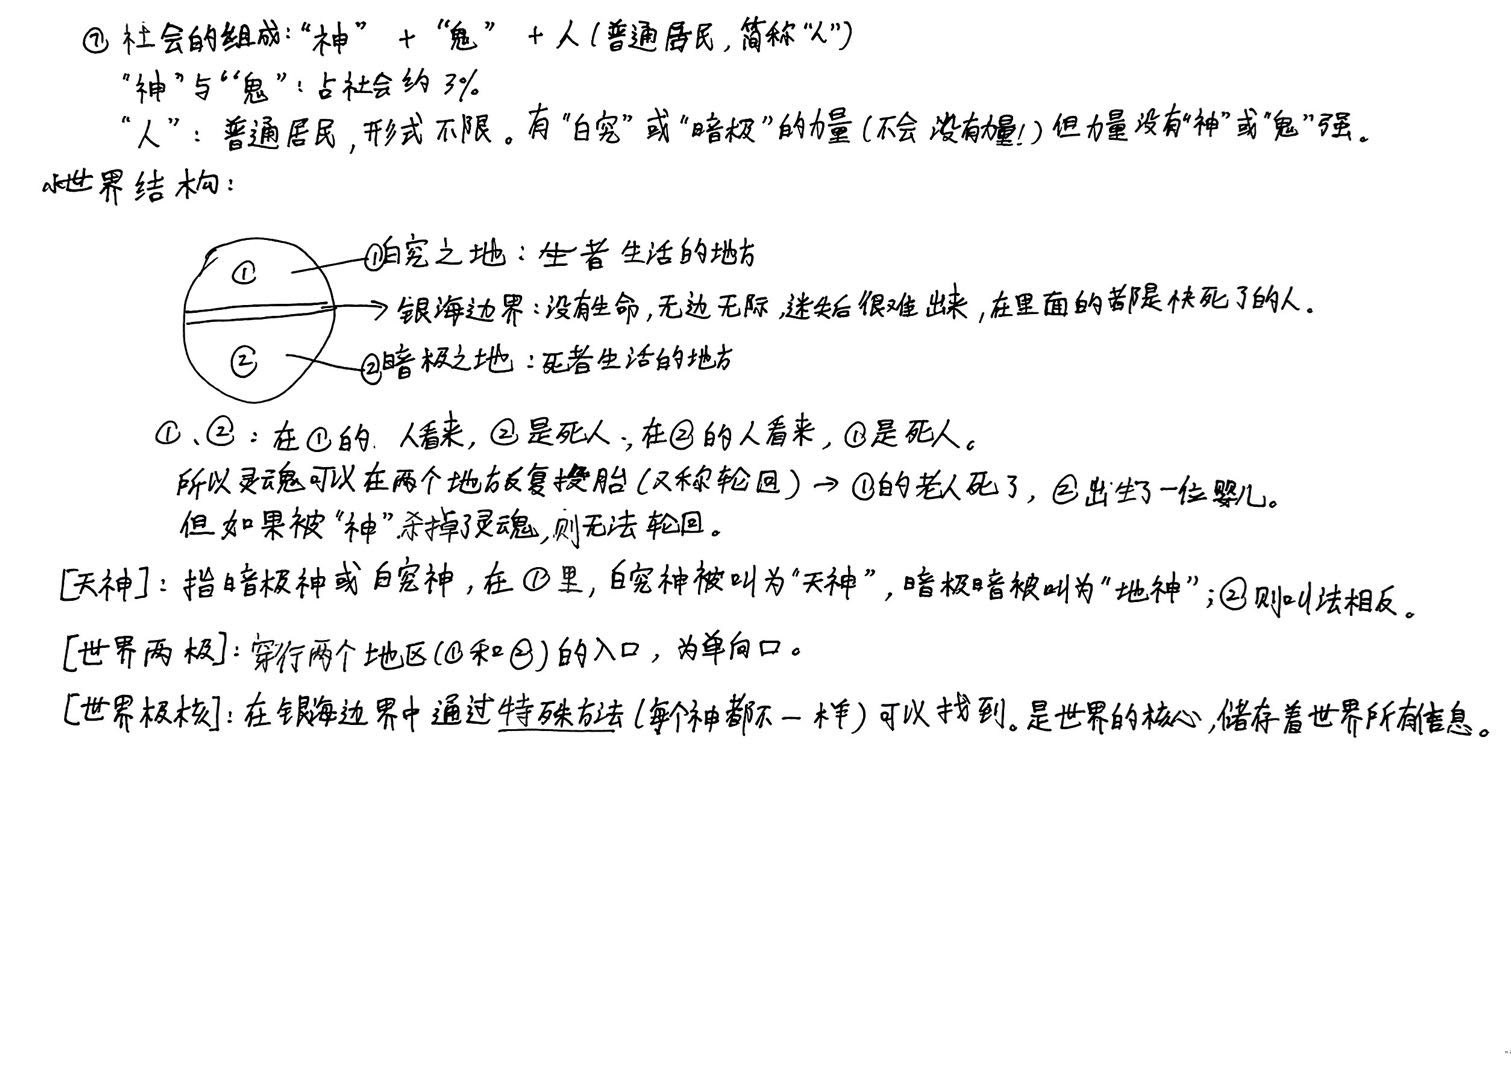 ⑦ 社会的组成：“神” + “鬼” + 人（普通居民，简称“人”）
“神”与“鬼”：占社会约 3%
“人”：普通居民，形式不限。有“白穹”或“暗极”的力量（不会没有力量！）但力量没有“神”或“鬼”强。
世界结构：
①
①白穹之地：生者生活的地方
银海边界：没有生命，无边无际，迷失后很难出来，在里面的都是快死了的人。
②
②暗极之地：死者生活的地方
①、②：在①的人看来，②是死人；在②的人看来，①是死人。
所以灵魂可以在两个地方反复投胎（又称轮回）→ ①的老人死了，②出生了一位婴儿。
但如果被“神”杀掉了灵魂，则无法轮回。
[天神]：指暗极神或白穹神，在①里，白穹神被叫为“天神”，暗极暗被叫为“地神”；②则叫法相反。
[世界两极]：穿行两个地区（①和②）的入口，为单向口。
[世界极核]：在银海边界中通过特殊方法（每个神都不一样）可以找到。是世界的核心，储存着世界所有信息。